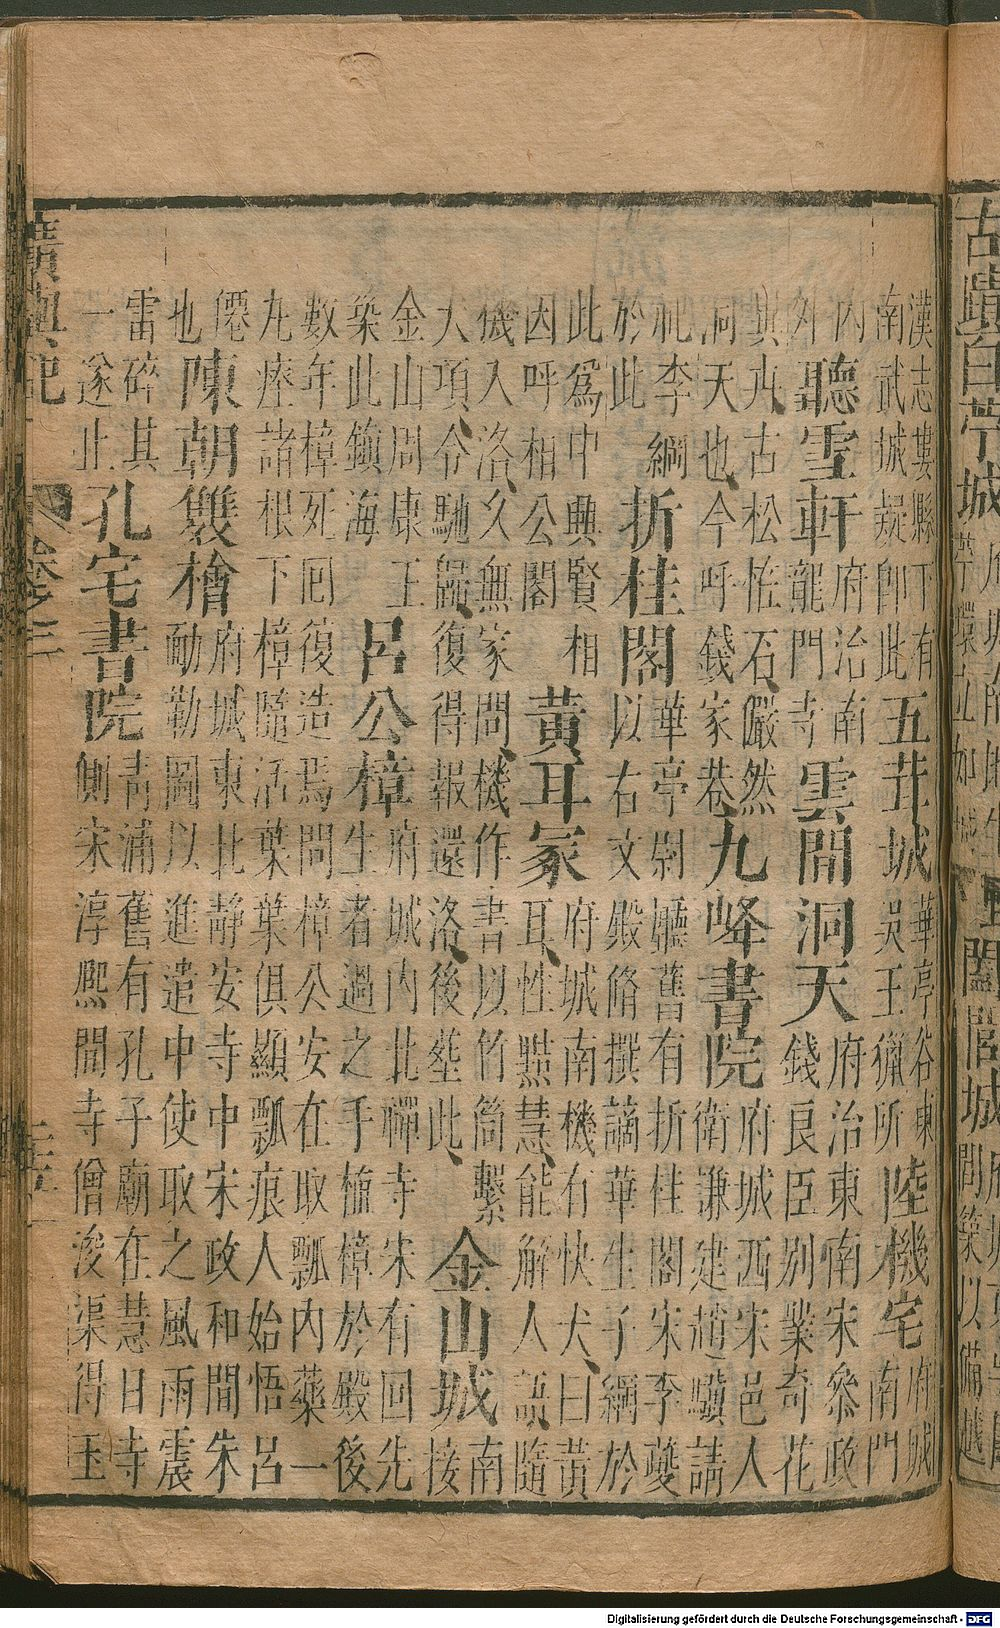 古蹟白苧城
闔閭城
築以備越
漢志婁縣下有南武城疑卽此五茸城華亭谷東吳王獵所陸機宅府城南門
内外聽雪軒府治南龍門寺雲間洞天府治東南宋參政錢良臣別業奇花
異卉古松恠石儼然洞天也今呼錢家巷九峰書院府城西宋邑人衛謙建趙驥請
祀李綱於此折桂閣華亭尉廳舊有折桂閣宋李夔以右文殿脩撰謫華生子綱於
此爲中興賢相因呼相公閣黃耳冢府城南機有快犬曰黃耳性黠慧能解人語隨
機入洛久無家問機作書以竹筒繫犬項令馳歸復得報還洛後塟此金山城南接
金山周康王築此鎮海呂公樟府城内北禪寺宋有回先生者過之手植樟於殿後
數年樟死囘復造焉問樟公安在取瓢内藥一丸瘞諸根下樟隨活葉葉俱顯瓢痕人始悟呂
僊也陳朝雙檜府城東北靜安寺中宋政和間朱勔勒圖以進遣中使取之風雨震
雷碎其一遂止孔宅書院青浦舊有孔子廟在慧日寺側宋淳熈間寺僧浚渠得玉
廣輿記
卷之三
Digitalisierung gefördert durch die Deutsche Forschungsgemeinschaft - DFG